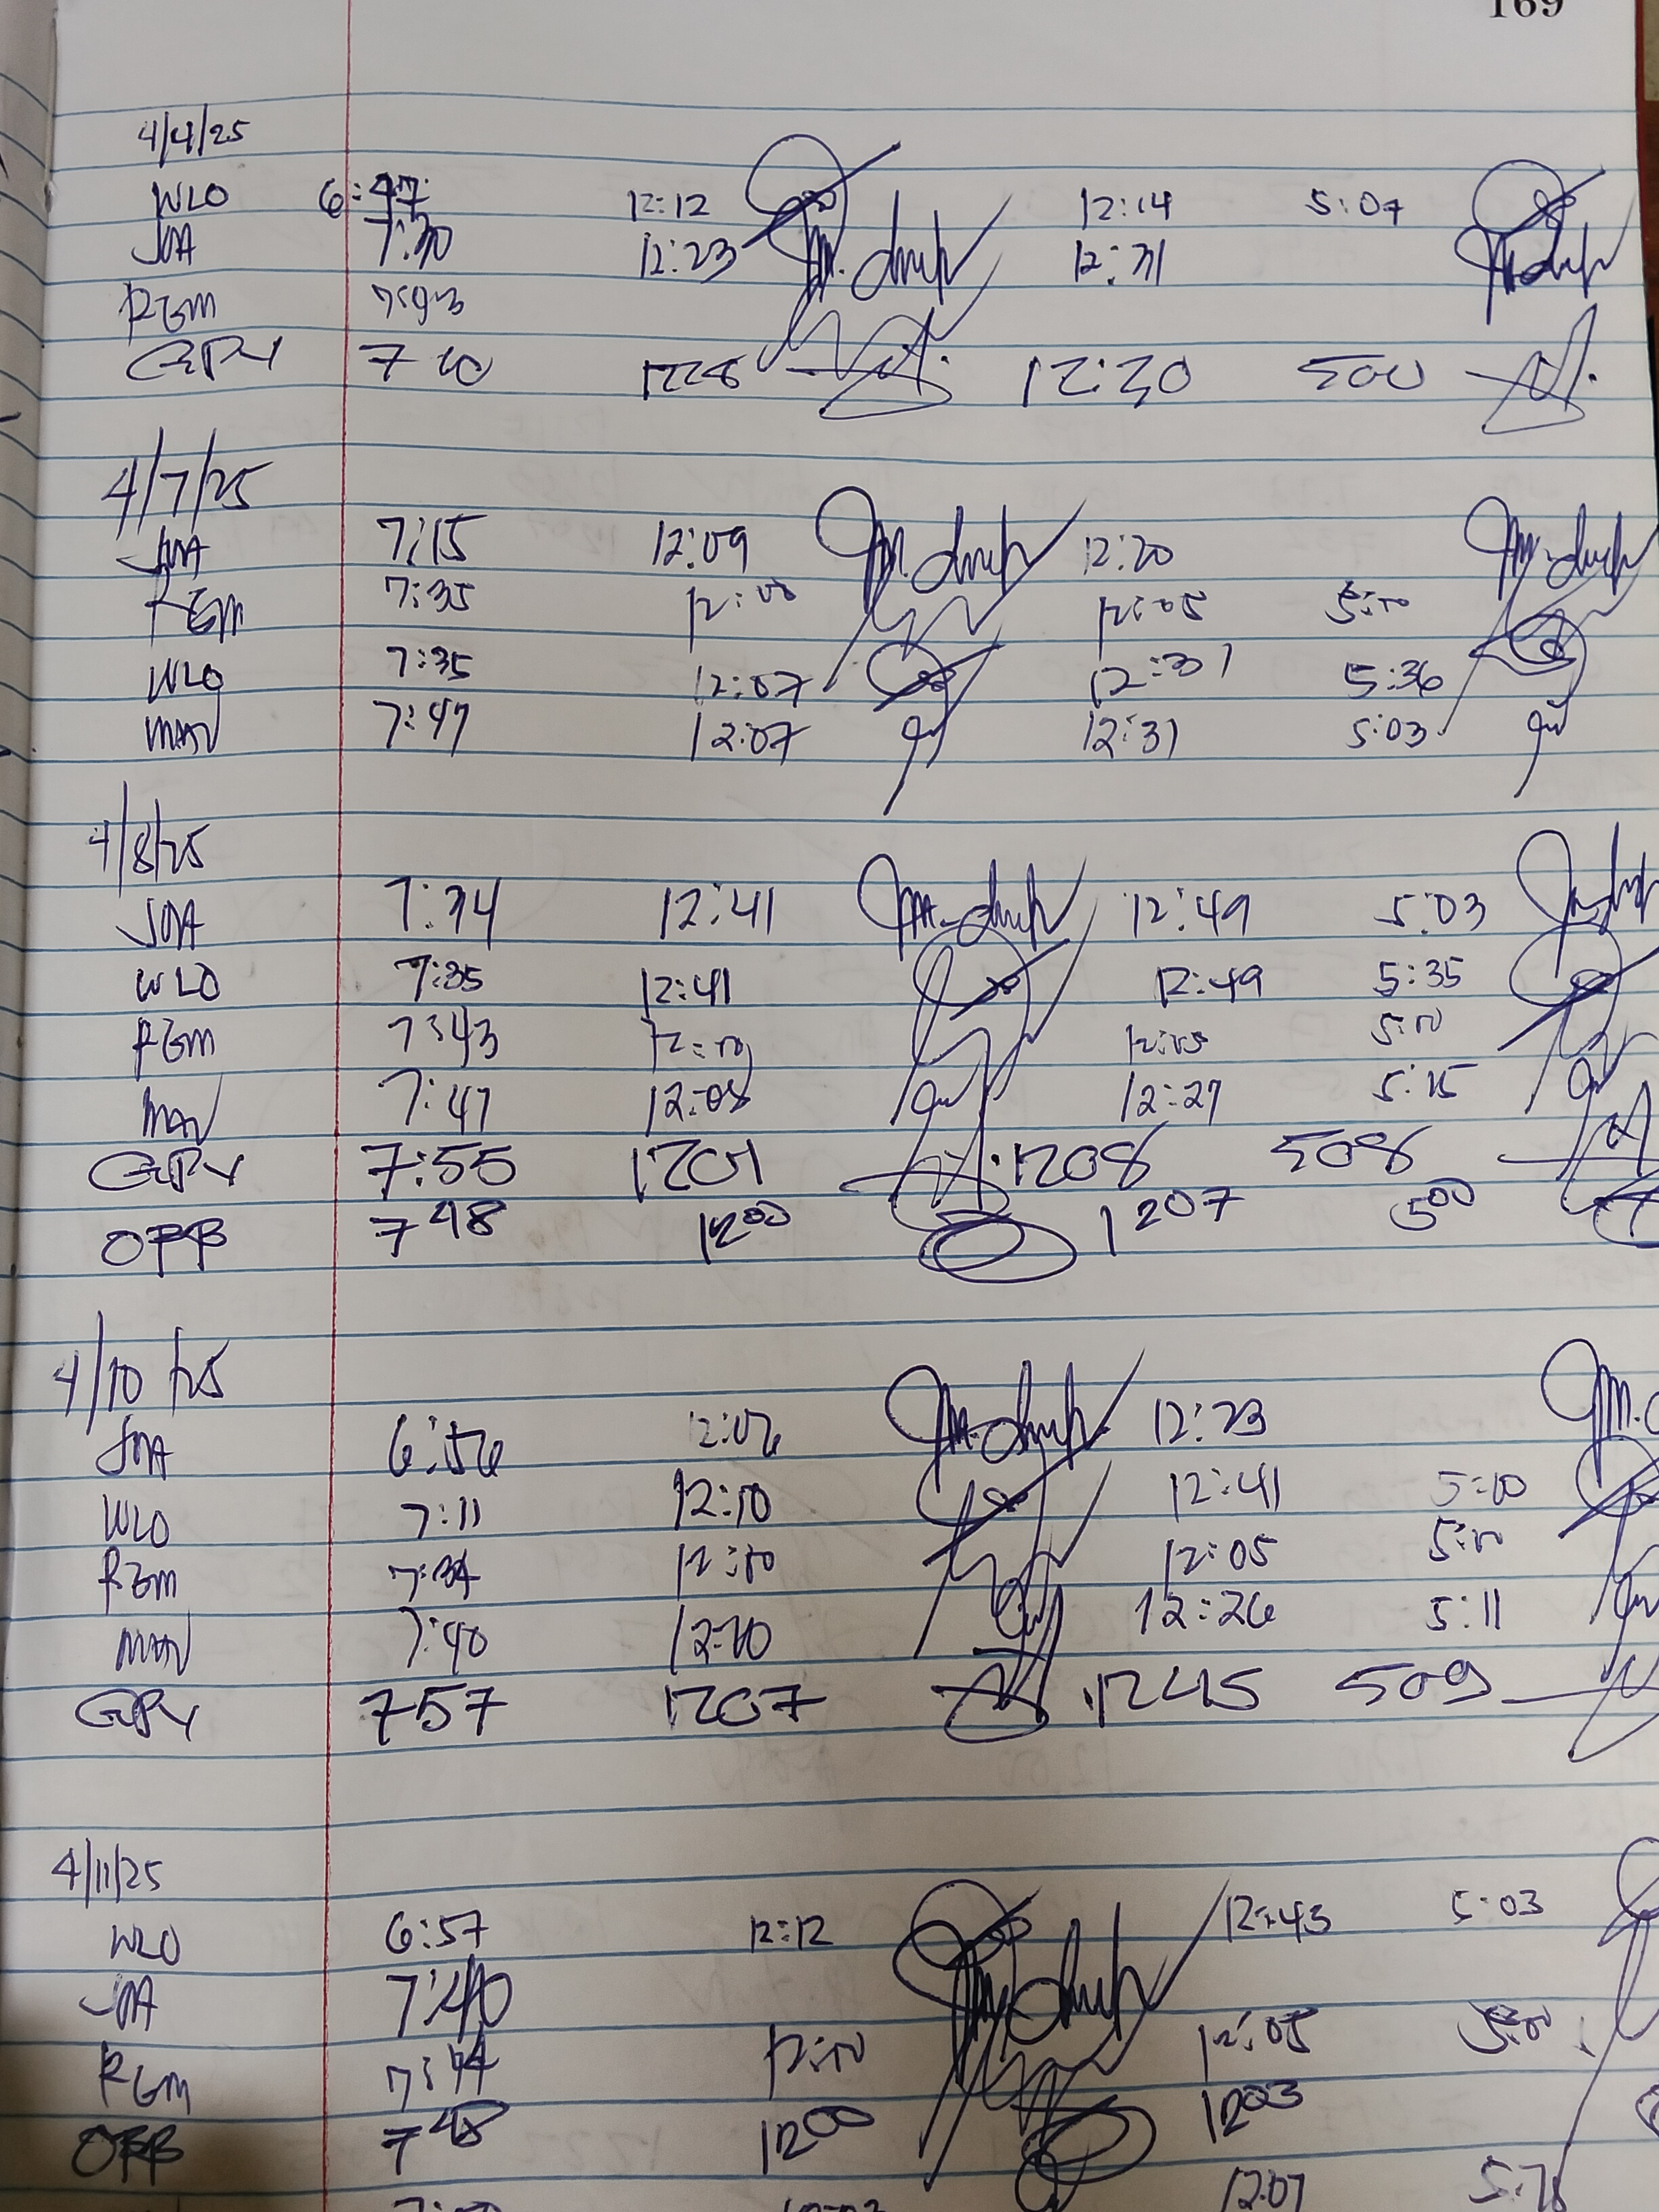 169
4/4/25
WLO 6:47 12:12 12:14 5:07
JOA 7:30 12:23 12:31
RGM 7:43
GPY 7 20 1228 12:30 500
4/7/25
JOA 7:15 12:09 12:20
RGM 7:35 12:00 12:05 5:00
WLO 7:35 12:07 12:31 5:36
MAV 7:47 12:07 12:31 5:03
4/8/25
JOA 7:34 12:41 12:49 5:03
WLO 7:35 12:41 12:49 5:35
RGM 7:43 12:00 12:05 5:00
MAV 7:47 12:08 12:27 5:15
GPY 7:55 1201 1208 508
OPB 7 48 12 00 1207 5 00
4/10/25
JOA 6:56 12:06 12:23
WLO 7:11 12:10 12:41 5:10
RGM 7:34 12:00 12:05 5:00
MAV 7:40 12:20 12:26 5:11
GPY 757 1207 1245 509
4/11/25
WLO 6:57 12:12 12:43 5:03
JOA 7:40
RGM 7:44 12:00 12:05 5:00
OPB 7 48 12 00 12 03
12:07